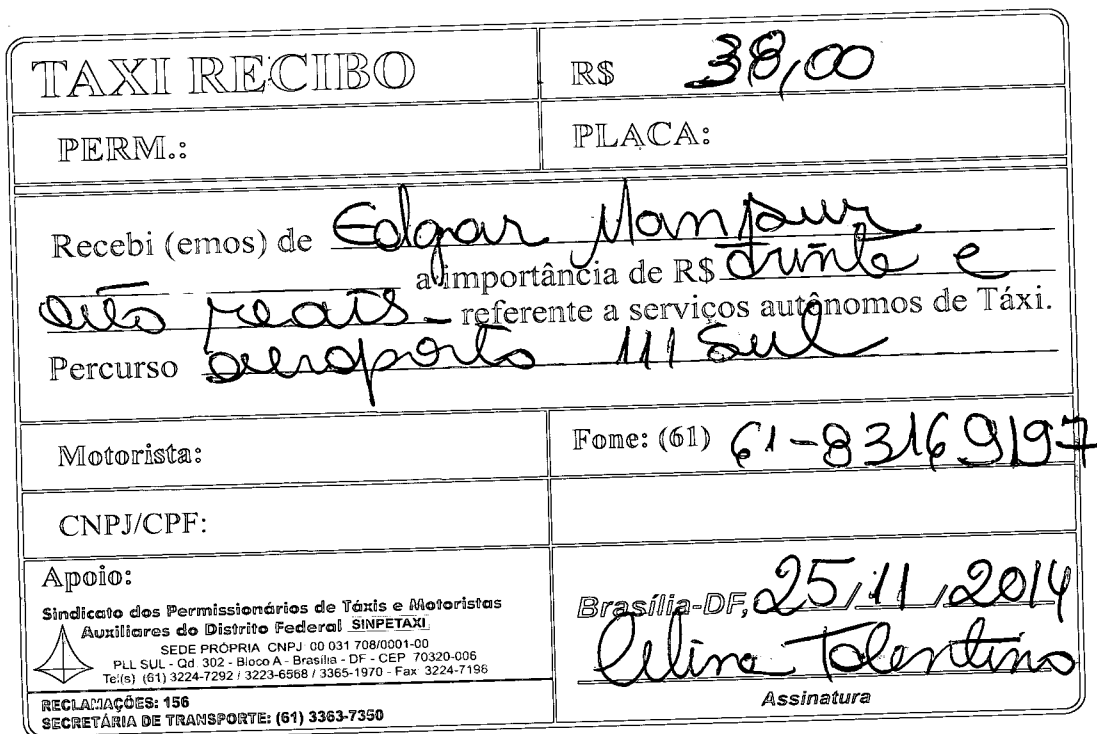 TAXI RECIBO
R$ 38,00
PERM.:
PLACA:
Recebi (emos) de Edgar Mansur
a importância de R$ trinta e
oito reais - referente a serviços autônomos de Táxi.
Percurso aeroporto 111 Sul
Motorista:
Fone: (61) 61-83169197
CNPJ/CPF:
Apoio:
Sindicato dos Permissionários de Táxis e Motoristas
Auxiliares do Distrito Federal SINPETAXI
SEDE PRÓPRIA CNPJ 00 031 708/0001-00
PLL SUL - Qd. 302 - Bloco A - Brasília - DF - CEP 70320-006
Tel(s) (61) 3224-7292 / 3223-6568 / 3365-1970 - Fax 3224-7196
RECLAMAÇÕES: 156
SECRETÁRIA DE TRANSPORTE: (61) 3363-7350
Brasília-DF, 25/11/2014
Celina Tolentino
Assinatura